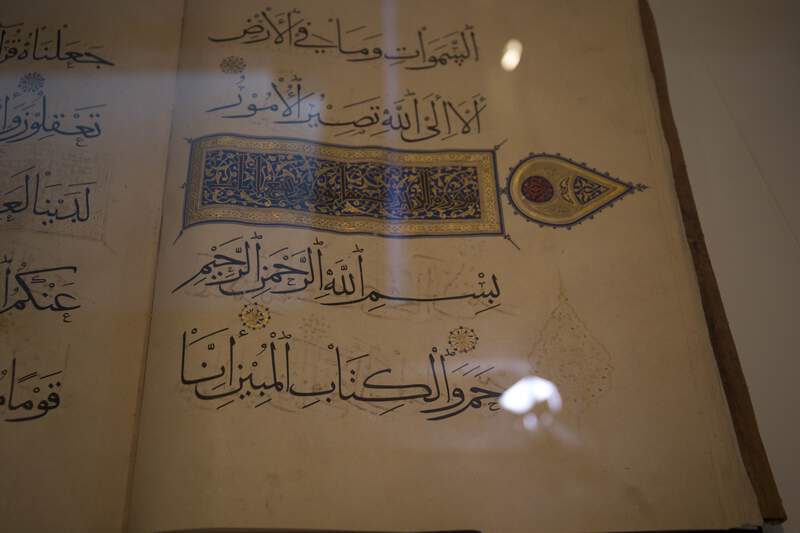 السَّمَوَاتِ وَمَا فِي الْأَرْضِ
أَلَا إِلَى اللَّهِ تَصِيرُ الْأُمُورُ
بِسْمِ اللَّهِ الرَّحْمَنِ الرَّحِيمِ
حم وَالْكِتَابِ الْمُبِينِ إِنَّا
جَعَلْنَاهُ قُرْآ
تَعْقِلُونَ وَإِ
لَدَيْنَا لَعَ
عَنْكُمُ ا
قَوْمًا